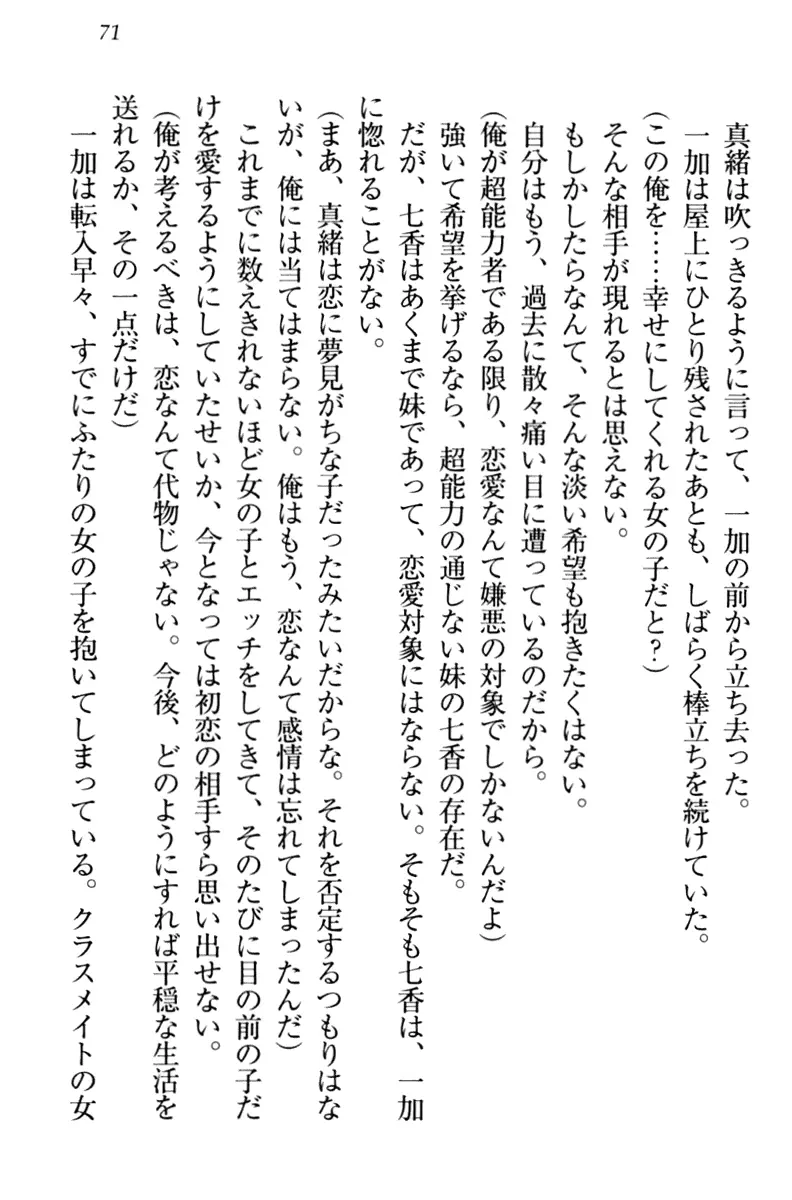 71
真緒は吹っきるように言って、一加の前から立ち去った。
一加は屋上にひとり残されたあとも、しばらく棒立ちを続けていた。
(この俺を……幸せにしてくれる女の子だと?)
そんな相手が現れるとは思えない。
もしかしたらなんて、そんな淡い希望も抱きたくはない。
自分はもう、過去に散々痛い目に遭っているのだから。
(俺が超能力者である限り、恋愛なんて嫌悪の対象でしかないんだよ)
強いて希望を挙げるなら、超能力の通じない妹の七香の存在だ。
だが、七香はあくまで妹であって、恋愛対象にはならない。そもそも七香は、一加
に惚れることがない。
(まあ、真緒は恋に夢見がちな子だったみたいだからな。それを否定するつもりはな
いが、俺には当てはまらない。俺はもう、恋なんて感情は忘れてしまったんだ)
これまでに数えきれないほど女の子とエッチをしてきて、そのたびに目の前の子だ
けを愛するようにしていたせいか、今となっては初恋の相手すら思い出せない。
(俺が考えるべきは、恋なんて代物じゃない。今後、どのようにすれば平穏な生活を
送れるか、その一点だけだ)
一加は転入早々、すでにふたりの女の子を抱いてしまっている。クラスメイトの女